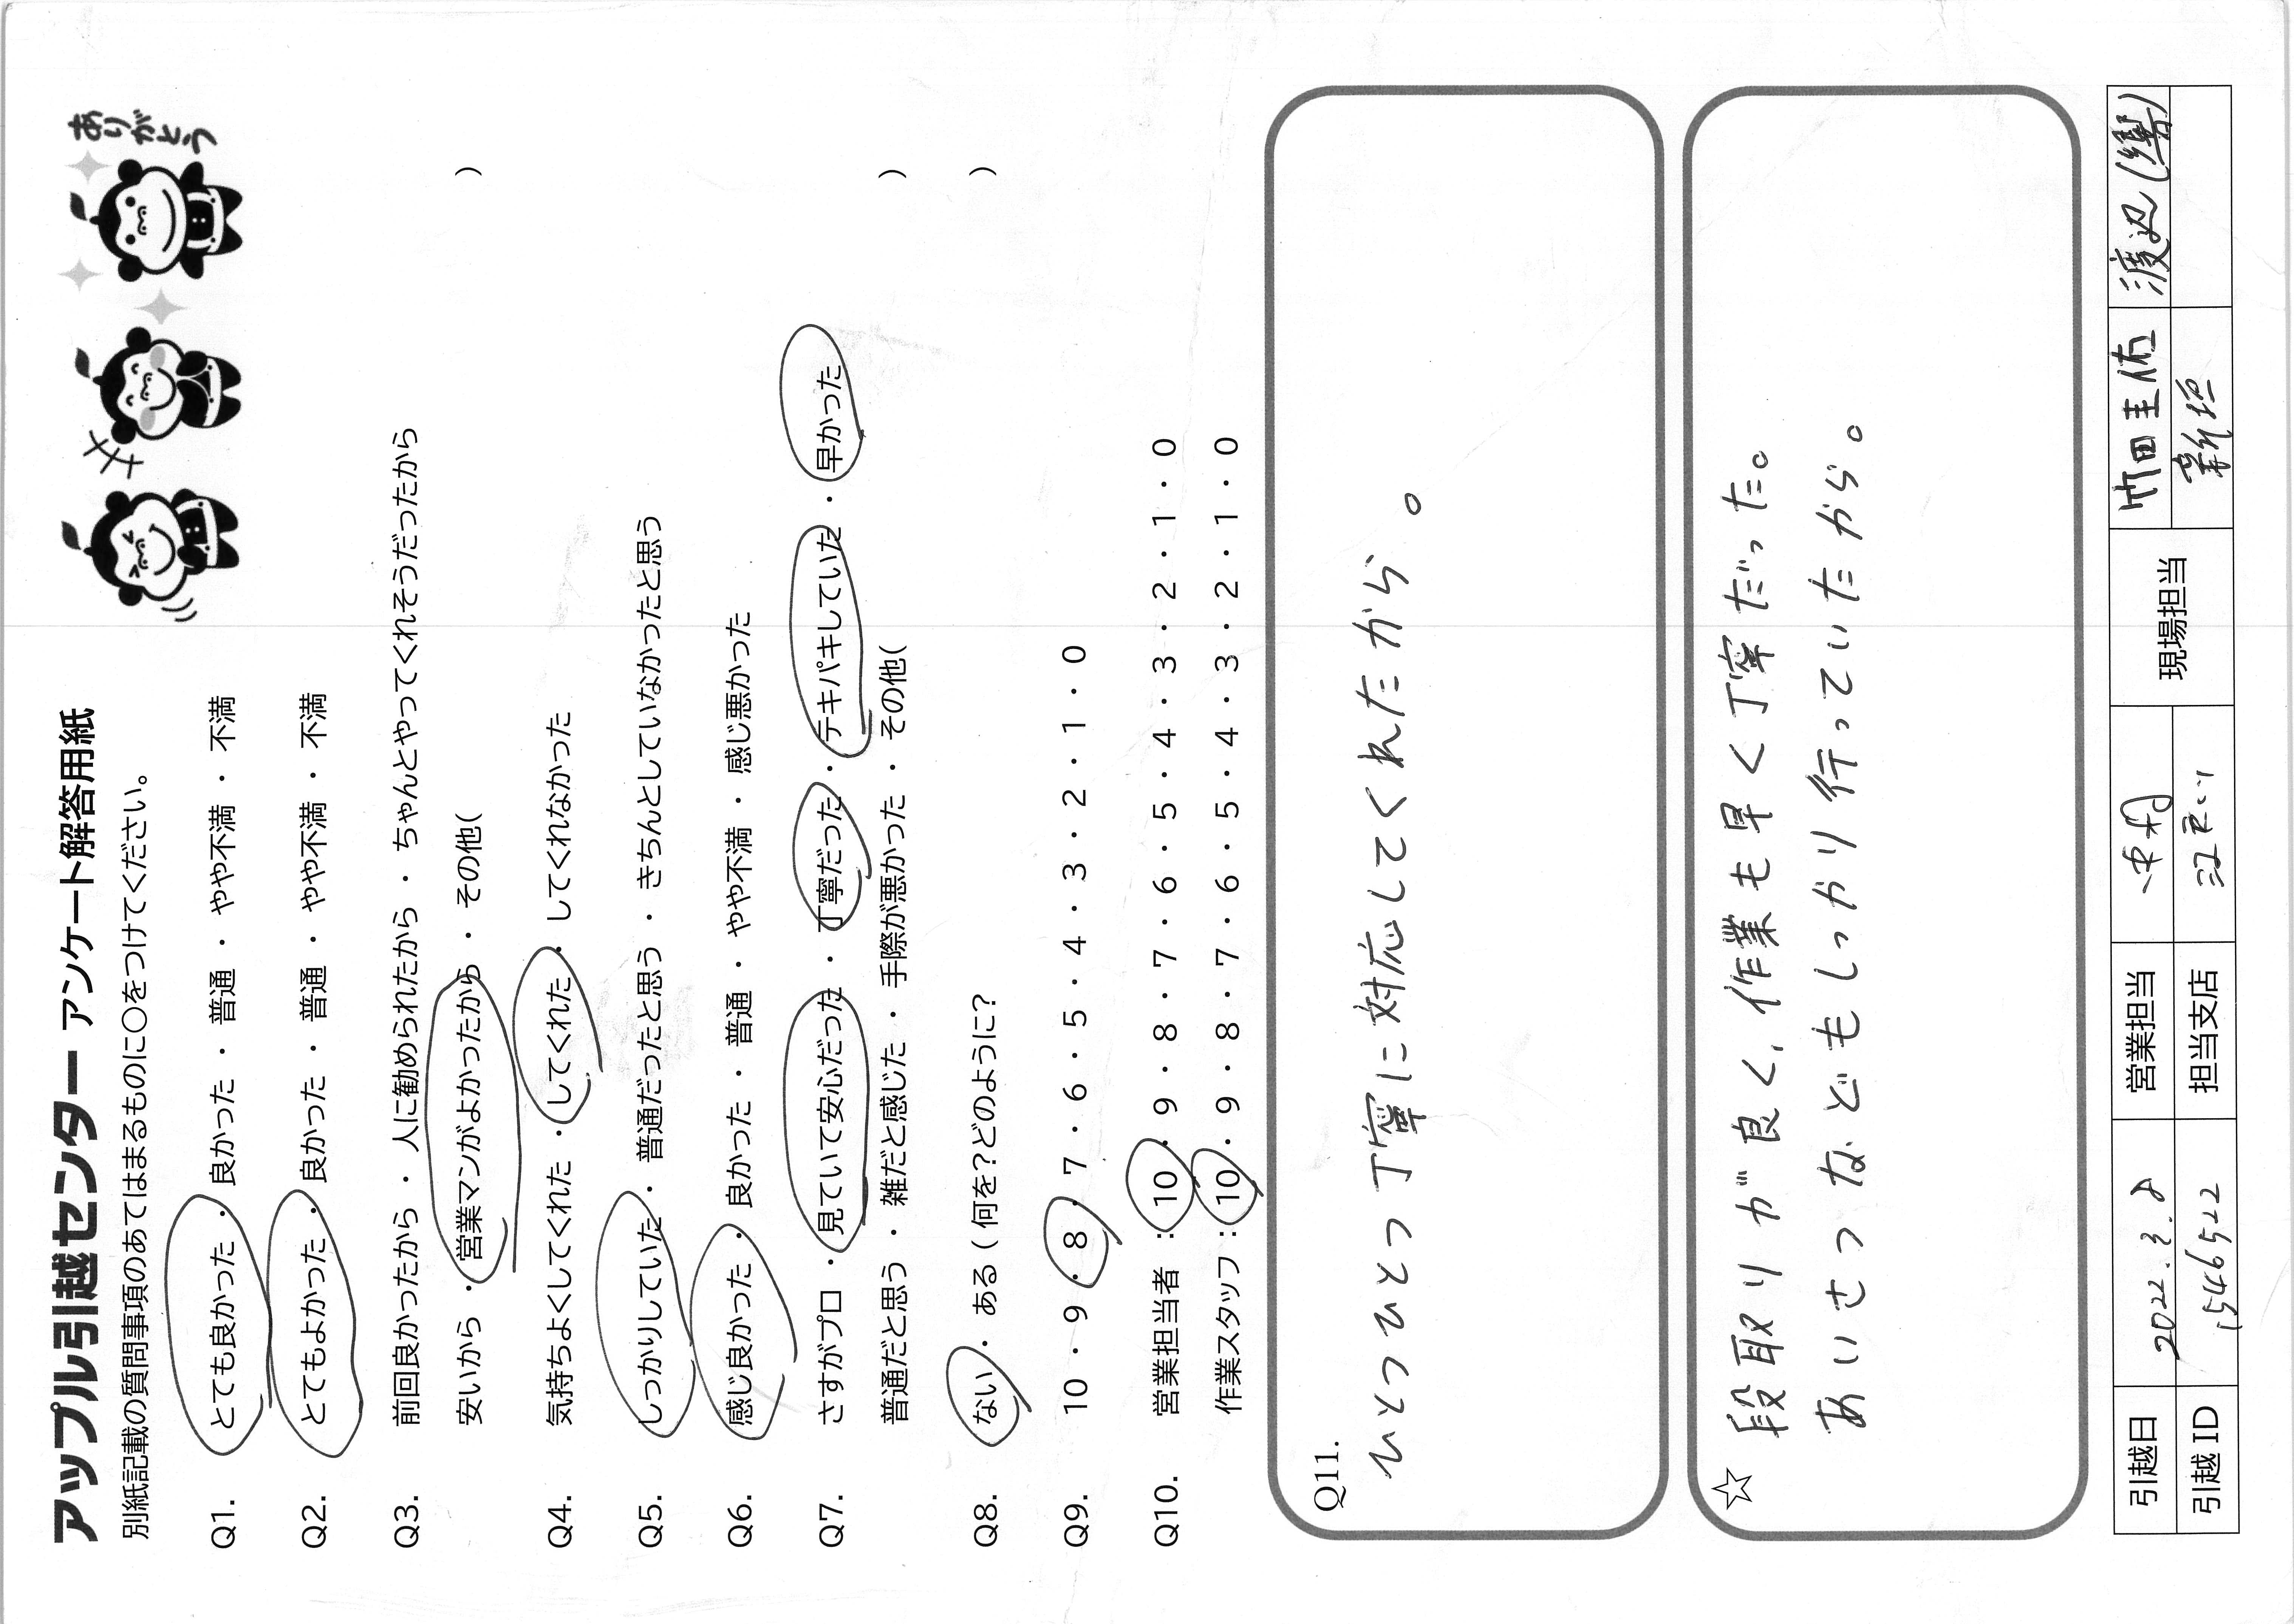 アップル引越センター アンケート解答用紙
ありがとう
別紙記載の質問事項のあてはまるものに○をつけてください。
Q1. とても良かった ・ 良かった ・ 普通 ・ やや不満 ・ 不満
Q2. とてもよかった ・ 良かった ・ 普通 ・ やや不満 ・ 不満
Q3. 前回良かったから ・ 人に勧められたから ・ ちゃんとやってくれそうだったから
安いから ・ 営業マンがよかったから ・ その他( )
Q4. 気持ちよくしてくれた ・ してくれた ・ してくれなかった
Q5. しっかりしていた ・ 普通だったと思う ・ きちんとしていなかったと思う
Q6. 感じ良かった ・ 良かった ・ 普通 ・ やや不満 ・ 感じ悪かった
Q7. さすがプロ ・ 見ていて安心だった ・ 丁寧だった ・ テキパキしていた ・ 早かった
普通だと思う ・ 雑だと感じた ・ 手際が悪かった ・ その他( )
Q8. ない ・ ある ( 何を?どのように? )
Q9. 10 ・ 9 ・ 8 ・ 7 ・ 6 ・ 5 ・ 4 ・ 3 ・ 2 ・ 1 ・ 0
Q10. 営業担当者 : 10 ・ 9 ・ 8 ・ 7 ・ 6 ・ 5 ・ 4 ・ 3 ・ 2 ・ 1 ・ 0
作業スタッフ : 10 ・ 9 ・ 8 ・ 7 ・ 6 ・ 5 ・ 4 ・ 3 ・ 2 ・ 1 ・ 0
Q11.
ひとつひとつ丁寧に対応してくれたから。
☆ 段取りが良く、作業も早く丁寧だった。
あいさつなどもしっかり行っていたから。
引越日 2022.3.8 営業担当 現場担当 竹田圭佑 渡辺
引越 ID 1546522 担当支店 江戸川 新垣